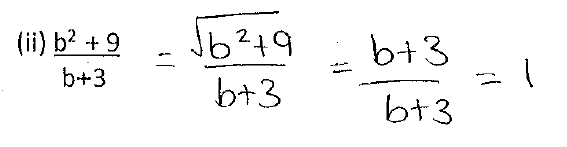 (ii) b² + 9 / b+3 = √b²+9 / b+3 = b+3 / b+3 = 1